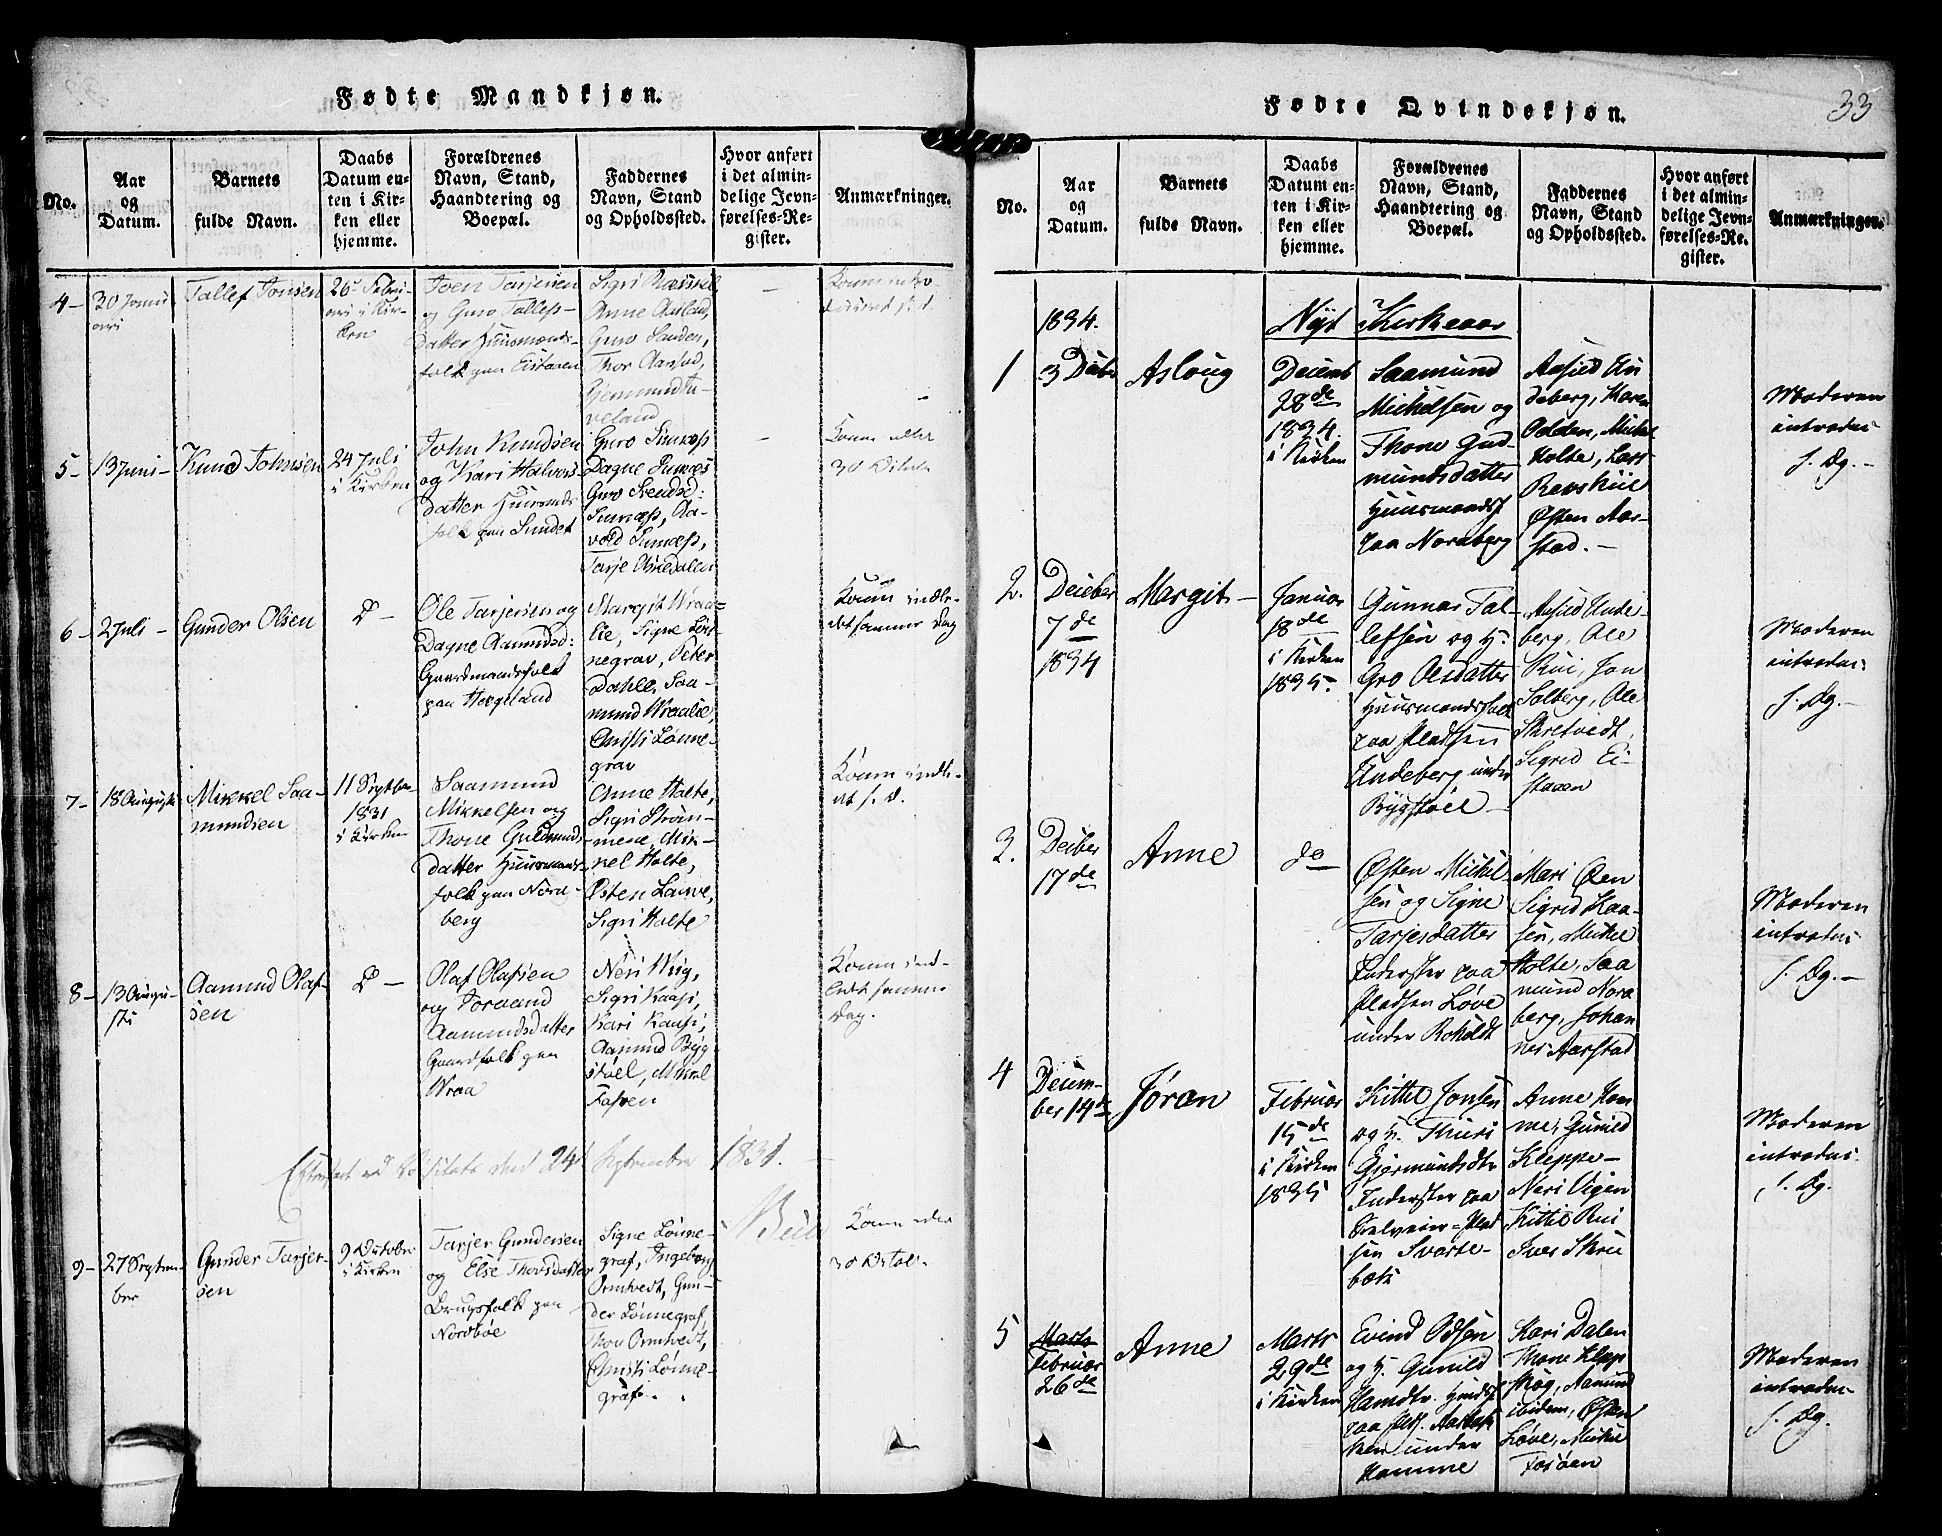 Fødte Mandkjøn.
No.
Aar
og
Datum.
Barnets
fulde Navn.
Daabs
Datum en-
ten i Kir-
ken eller
hjemme.
Forældrenes
Navn, Stand,
Haandtering og
Boepæl.
Faddernes
Navn, Stand
og Opholdssted.
Hvor anført
i det almin-
delige Jevn-
førelses-Re-
gister.
Anmærkninger.
4 -
30 Janu
ari
Tallef Jonsen
26 Febru
ari i Kir-
ken
Joen Tarjesen
og Guro Tallefs-
datter Huusmands-
folk paa Eistaaen
Anne Aasland,
Guro Sanden,
Thor Aarstad,
Gjermund Tu-
veland
-
5 -
13 Juni -
Knud Johnsen
24 Juli
i Kirken
John Knudsen
og Kari Halvors
datter Huusmands
folk paa Sundet
Guro Sunæss
Dagne Sunæss
Guro Svendsd:
Sunæss, Aa-
vold Sunæss,
Tarje Osnedalen
-
6 -
2 Juli -
Gunder Olsen
D -
Ole Tarjesen og
Dagne Aamundsd:
Gaardmandsfolk
paa Haegeland
Margit Wraa-
lie, Signe Løn-
negrav, Peter
Dahle, Saa-
mund Wraalie,
Christi Lønne-
grav
Kom indle-
det samme Dag
7 -
18 Augusti
Mikkel Saa-
mundsen
11 Septber
1831
i Kirken
Saamund
Mikkelsen og
Thone Guldmunds
datter Huusmands
folk paa Nord-
berg
Anne Holte,
Sigri Strøm-
mene, Mik-
kel Holte,
Østen Løuve,
Sigri Holte
Kom indle-
det s. D.
8 -
13 Augu-
sti
Aamund Olaf-
sen
D -
Olaf Olafsen
og Joraand
Aamundsdatter
Gaardfolk paa
Wraa
Neri Wiig,
Sigri Kaasi,
Kari Kaasi,
Aamund Byg
støel, Mikkel
Fossen
Kom ind-
ledt samme
Dag.
24 September 1831. -
9 -
27 Septem
ber
Gunder Tarjer-
sen
9 October
i Kirken
Tarjer Gundersen
og Else Thorsdatter
Brugsfolk paa
Nordbøe
Signe Lønne-
graf, Ingeborg
Ormtvedt, Gun-
der Lønnegraf,
Thor Ormtvedt,
Christi Lønne-
graf.
Fødte Qvindekjøn.
33
No.
Aar
og
Datum.
Barnets
fulde Navn.
Daabs
Datum en-
ten i Kir-
ken eller
hjemme.
Forældrenes
Navn, Stand,
Haandtering og
Boepæl.
Faddernes
Navn, Stand
og Opholdssted.
Hvor anført
i det almin-
delige Jevn-
førelses-Re-
gister.
Anmærkninger.
1834.
Nyt Kirkeaar
1
3 Decbr
Asloug
Decemb
28de
1834
i Kirken
Saamund
Michelsen og
Thone Gud-
mundsdatter
Huusmandsf
paa Nordberg
Aasild Un
deberg, Karen
Odden, Michel
Holte, Lars
Ravskiil
Østen Aar-
stad. -
Moderen
introdu:
s. Dg. -
2.
Decber
7de
1834
Margit -
Januar
18de
i Kirken
1835.
Gunnar Tal-
lefsen og H.
Gro Olsdatter
Huusmandsfolk
paa Pladsen
Undeberg under
Bygstøel -
Aasild Unde-
berg, Ole
Rui, Jon
Solberg, Ole
Skretvedt,
Sigrid Ei-
staaen
Moderen
introdu:
s. Dg. -
3.
Decber
17de
Anne
do
Østen Michel-
sen og Signe
Tarjesdatter
Inderster paa
Pladsen Løve
under Roholdt
Mari Øen
Sigrid Kaa-
sen, Michel
Holte, Saa
mund Nord
berg, Johan
nes Aarstad
Moderen
introdu:
s. Dg. -
4
Decem-
ber 14de
Jøran
Februar
15de
i Kirken
1835
Kittil Jonsen
og H. Thuri
Gjermundsdtr
Inderster paa
sen Svarte-
bæk
Anne Ham
me, Gunild
Kleppe -
Neri Vigen
Kittil Rui
Iver Skrei
Moderen
introdu:
s. Dg.
5
Marts
Februar
26de
Anne
Marts
29de
i Kirken
Evind Odsen
og H. Gunild
paa Plds. Aasbak
ken under
Hamme
Kari Dalen
Thone Klepp
skog, Aamund
ibidem, Østen
Løve, Michel
Fosøen
Moderen
introdu:
s. Dg.